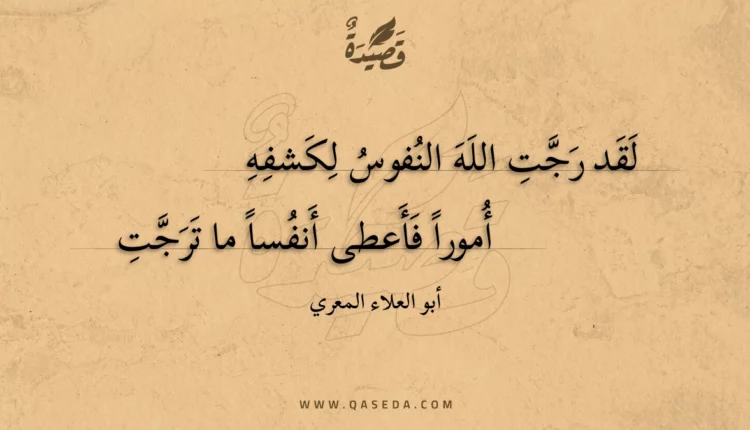 قَصِيدَةٌ
لَقَد رَجَّتِ اللَهَ النُفوسُ لِكَشفِهِ
أُموراً فَأَعطى أَنفُساً ما تَرَجَّتِ
أبو العلاء المعري
WWW.QASEDA.COM